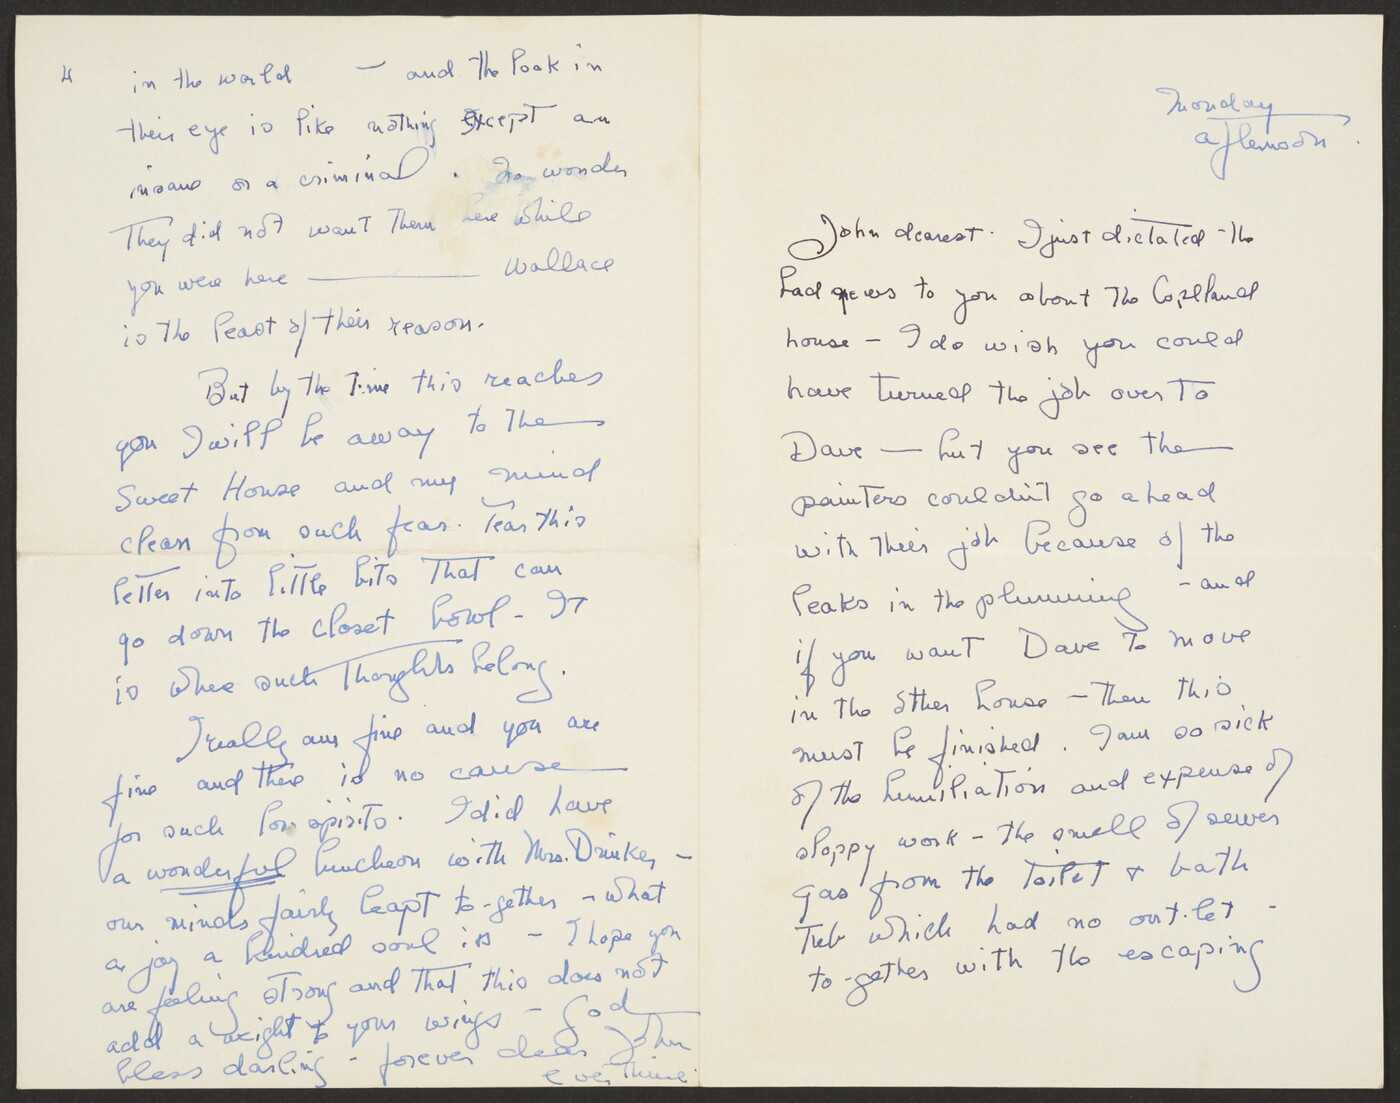 Monday
afternoon.
John dearest. I just dictated the
bad news to you about the Copeland
house - I do wish you could
have turned the job over to
Dave — but you see the
painters couldn't go ahead
with their job because of the
leaks in the plumming - and
if you want Dave to move
in the other house - then this
must be finished. I am so sick
of the humiliation and expense of
sloppy work - the smell of sewer
gas from the toilet + bath
tub which had no out-let -
to-gether with the escaping
4
in the world — and the look in
their eye is like nothing except an
insane or a criminal. No wonder
They did not want them here while
you were here ———— Wallace
is the least of their reason.
But by the time this reaches
you I will be away to the
Sweet House and my mind
clean from such fear. Tear this
letter into little bits that can
go down the closet bowl - It
is where such thoughts belong.
I really am fine and you are
fine and there is no cause
for such low spirits. I did have
a wonderful luncheon with Mrs. Drinker -
our minds fairly leapt to-gether - what
a joy a kindred soul is - I hope you
are feeling strong and that this does not
add a weight to your wings - God
bless darling - forever dear John
ever thine